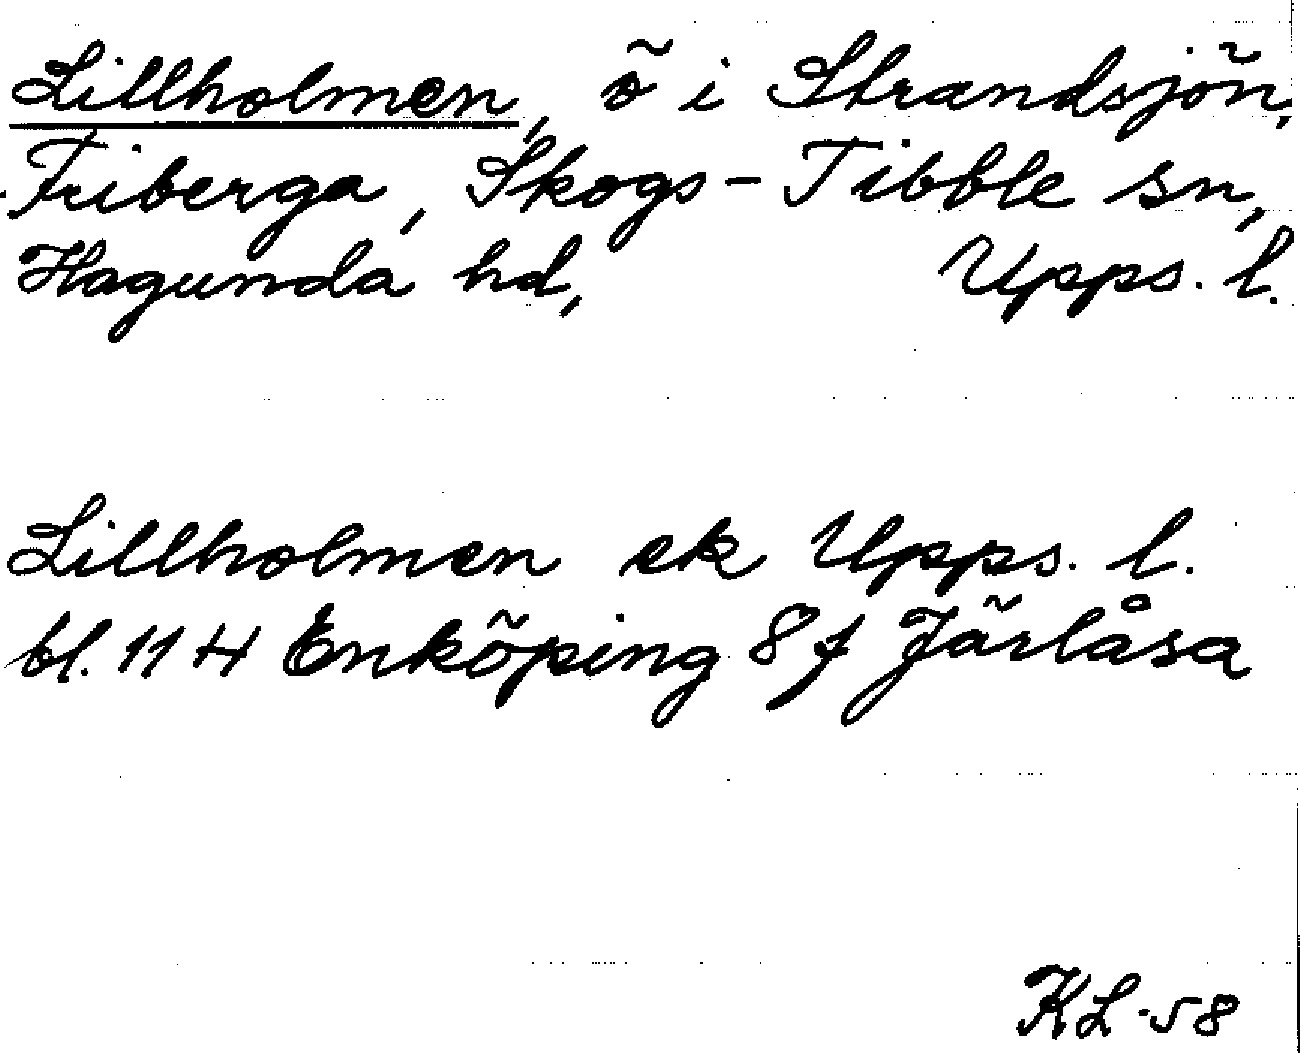 Lillholmen, ö i Strandsjön,
Friberga, Skogs-Tibble sn,
Hagunda hd, Upps. l.
Lillholmen ek Upps. l.
bl. 11 H Enköping 8 f Järlåsa
KL-58